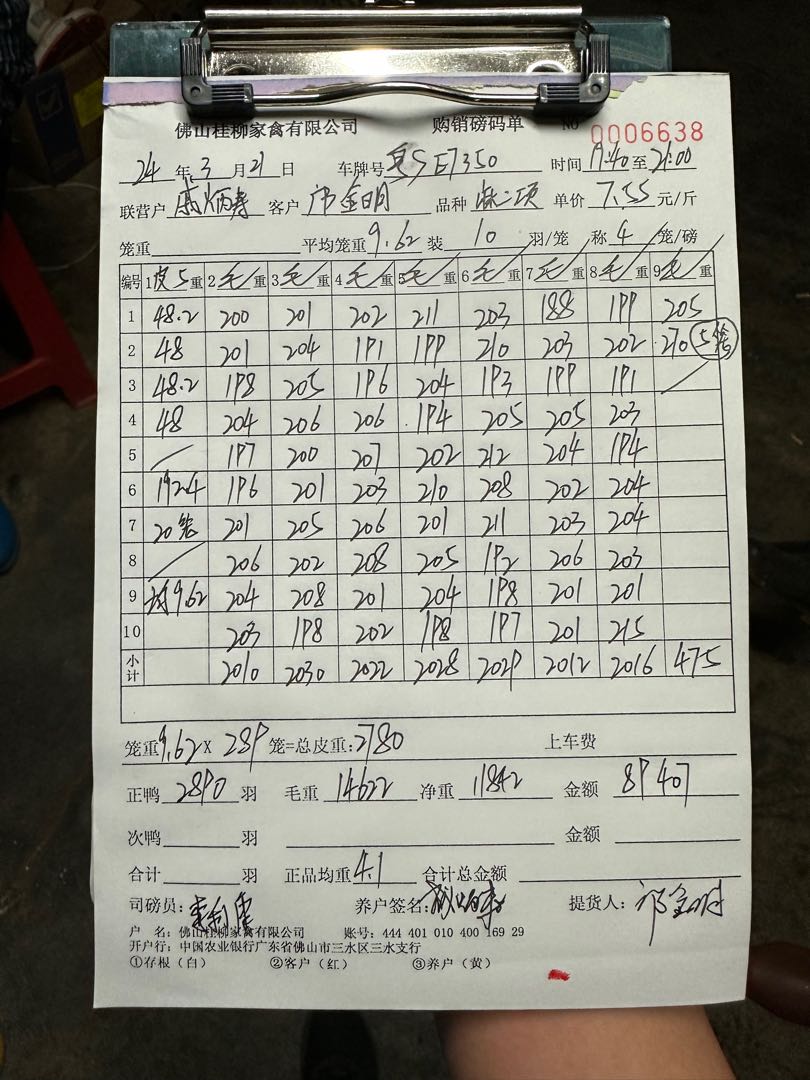 佛山桂柳家禽有限公司 购销磅码单 NO 0006638
24 年 3 月 21 日 车牌号 粤SE7350 时间 19:40 至 21:00
联营户 炳寿 客户 邝金明 品种 单价 7.55 元/斤
笼重 平均笼重 9.62 装 10 羽/笼 称 4 笼/磅
编号 1皮5重 2毛/重 3毛/重 4毛/重 5毛/重 6毛/重 7毛/重 8毛/重 9毛/重
1 48.2 200 201 202 211 203 188 199 205
2 48 201 204 191 199 210 203 202 270 5笼
3 48.2 198 205 196 204 193 199 191
4 48 204 206 206 194 205 205 203
5 197 200 207 202 212 204 194
6 192.4 196 201 203 210 208 202 204
7 20笼 201 205 206 201 211 203 204
8 206 202 208 205 192 206 203
9 均9.62 204 208 201 204 198 201 201
10 203 198 202 198 197 201 215
小计 2010 2030 2022 2028 2029 2012 2016 475
笼重 9.62 X 289 笼=总皮重: 2780 上车费
正鸭 2890 羽 毛重 14622 净重 11842 金额 89407
次鸭 羽 金额
合计 羽 正品均重 4.1 合计总金额
司磅员: 养户签名: 提货人:
户 名: 佛山桂柳家禽有限公司 账号: 444 401 010 400 169 29
开户行: 中国农业银行广东省佛山市三水区三水支行
①存根(白) ②客户(红) ③养户(黄)